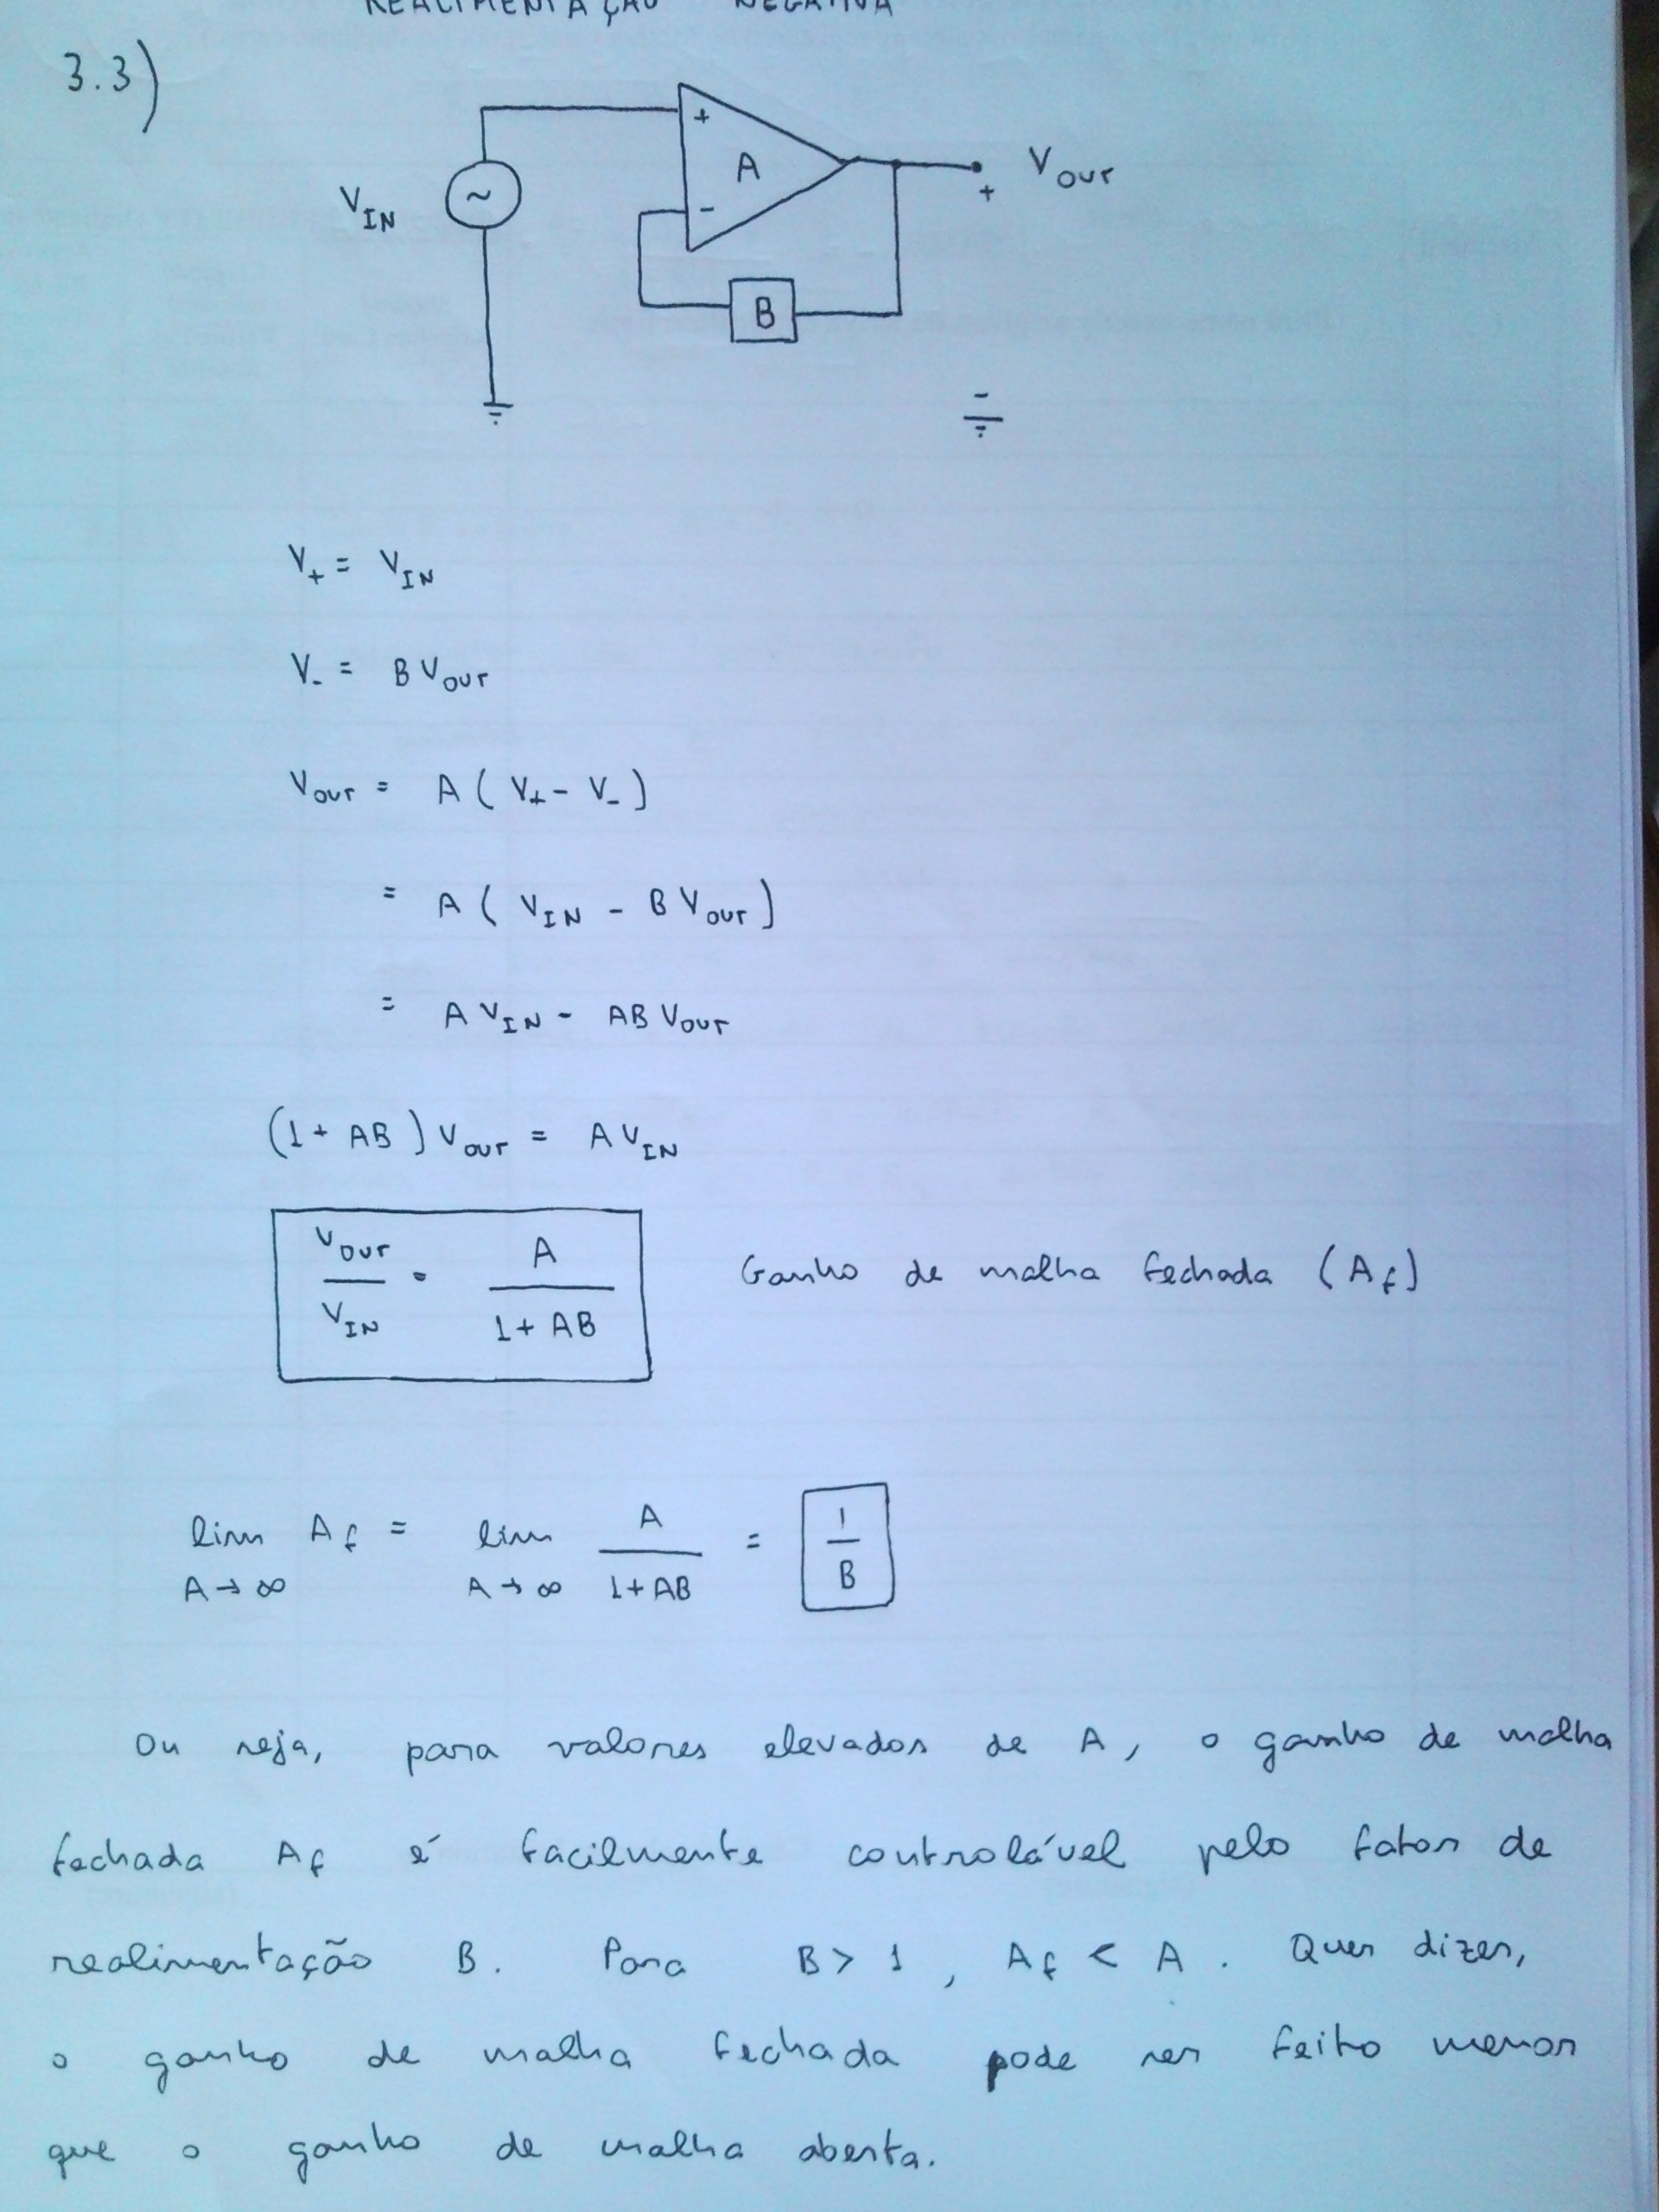 REALIMENTAÇÃO NEGATIVA
3.3)
+
A
-
V_IN
~
B
V_OUT
+
-
V_+ = V_IN
V_- = B V_OUT
V_OUT = A ( V_+ - V_- )
= A ( V_IN - B V_OUT )
= A V_IN - AB V_OUT
(1 + AB) V_OUT = A V_IN
V_OUT / V_IN = A / (1 + AB) Ganho de malha fechada (A_f)
lim A→∞ A_f = lim A→∞ A / (1 + AB) = 1 / B
Ou seja, para valores elevados de A, o ganho de malha
fechada A_f é facilmente controlável pelo fator de
realimentação B. Para B > 1, A_f < A. Quer dizer,
o ganho de malha fechada pode ser feito menor
que o ganho de malha aberta.